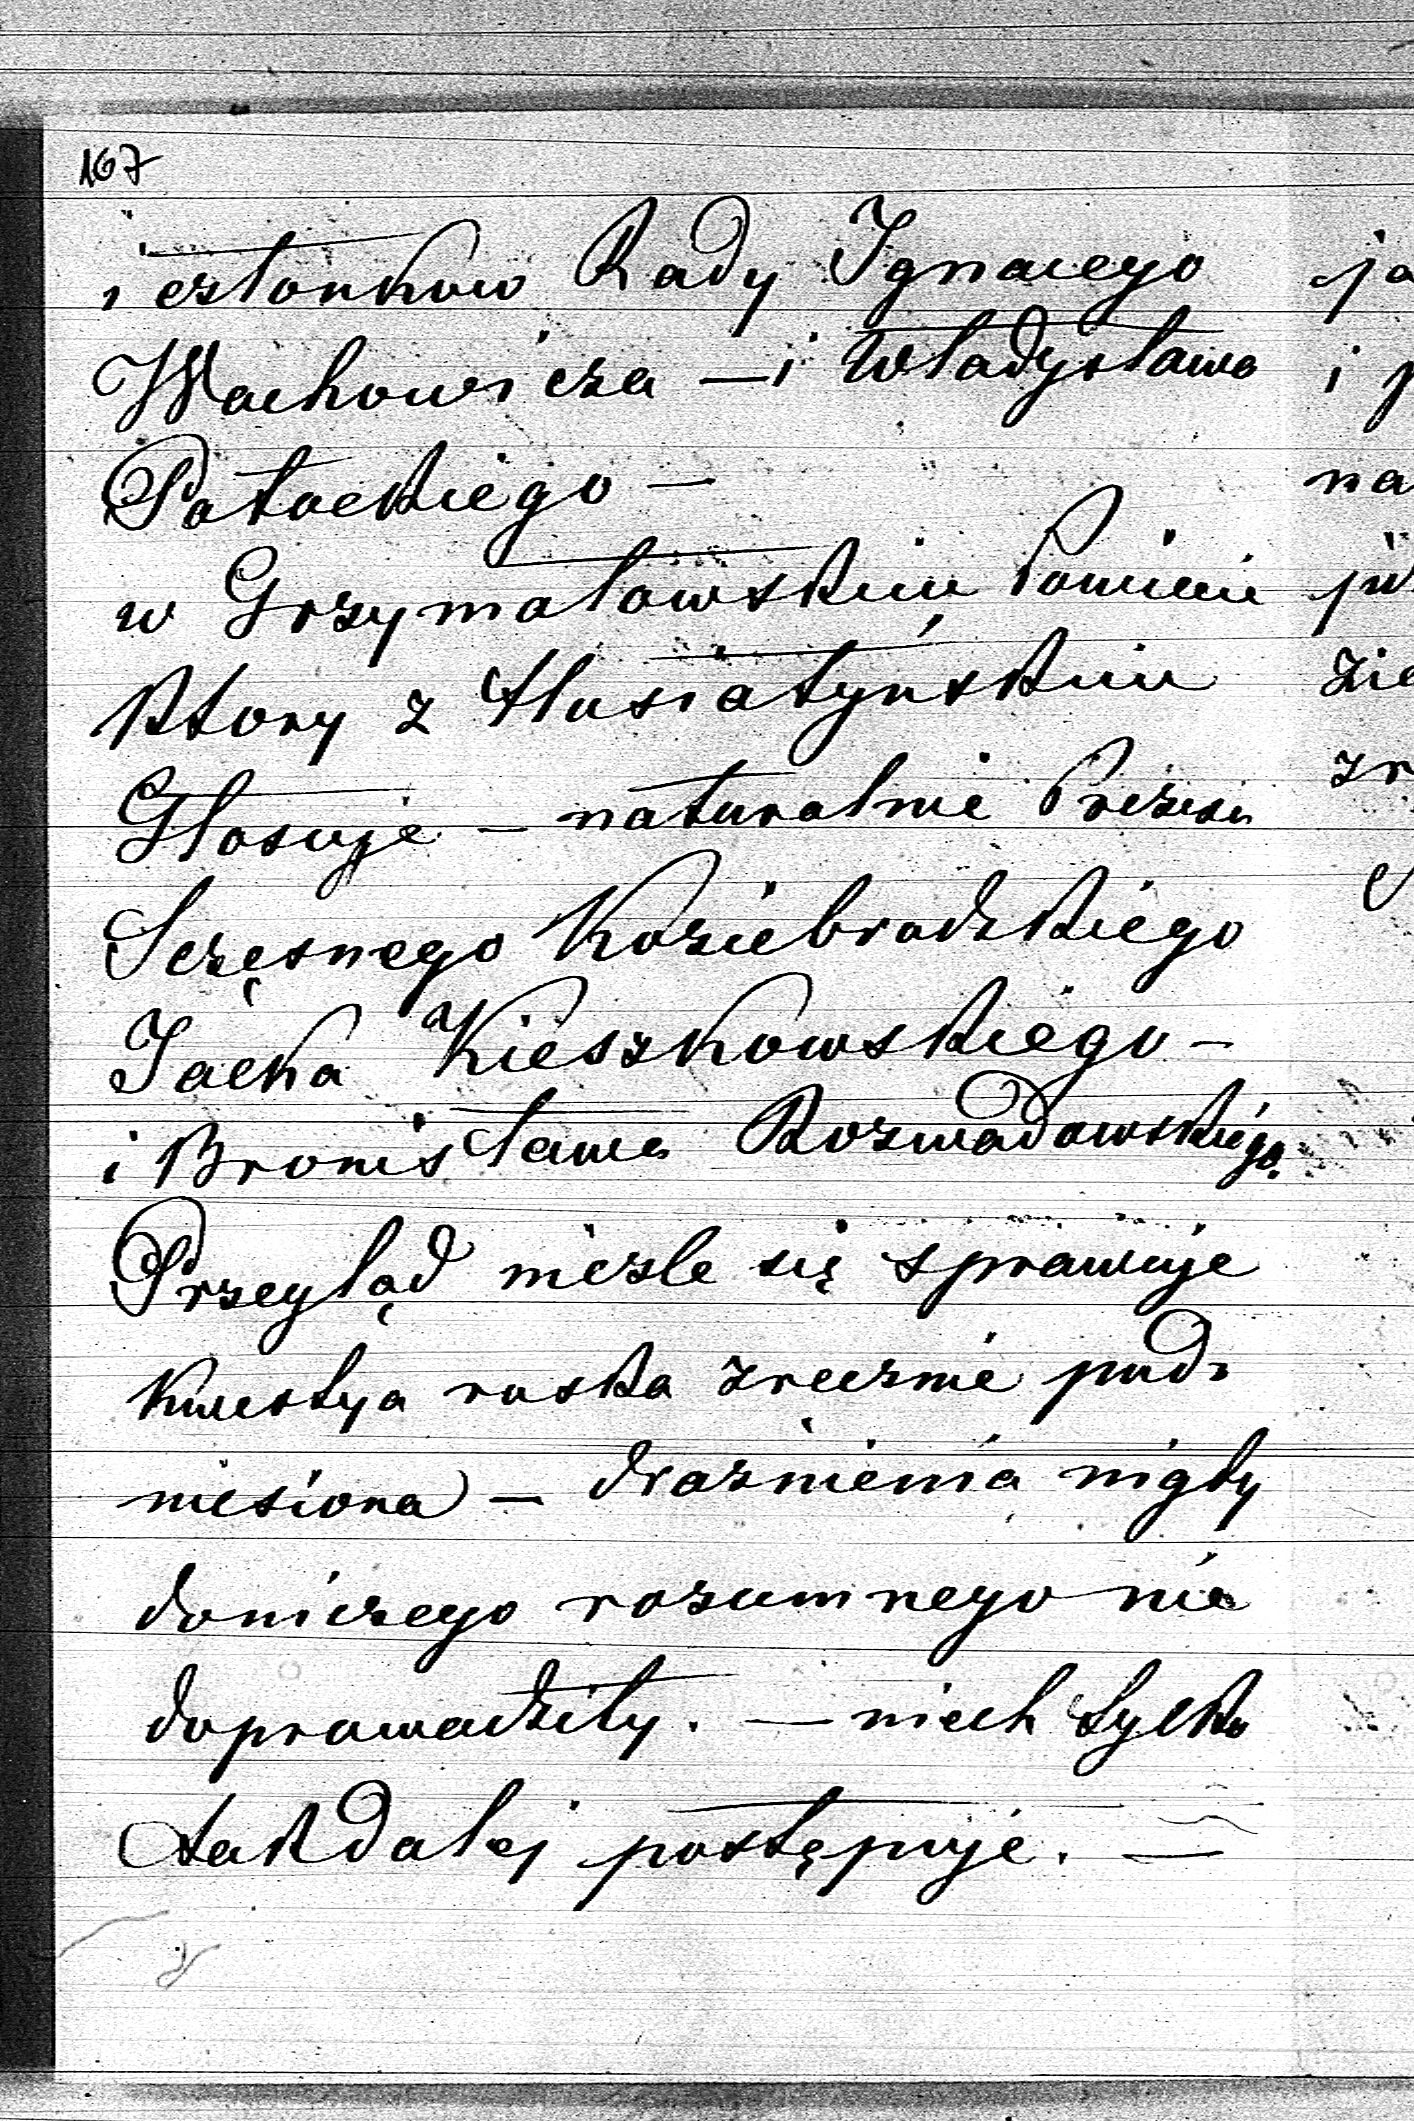 167
i członkow Rady Ignacego
Wachowicza – i Władysława
Potockiego –
w Grzymałowskim Powiecie
Ktory z Husiatyńskim
Głosuje – naturalnie Prezesa
Szczęsnego Koziebrodzkiego
Jacka Kieszkowskiego –
i Bronisława Rozwadowskiego.
Przegląd niezle się sprawuje
Kwestya ruska zręcznie pod-
niesiona – draznienia nigdy
doniczego rozumnego nie
doprowadziły. – niech tylko
tak dalej postępuje. –
ja
i p
na
zie
zr